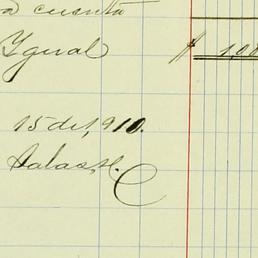 a cuenta
Ygual $ 1,00
15 de 1,910.
Salas H.